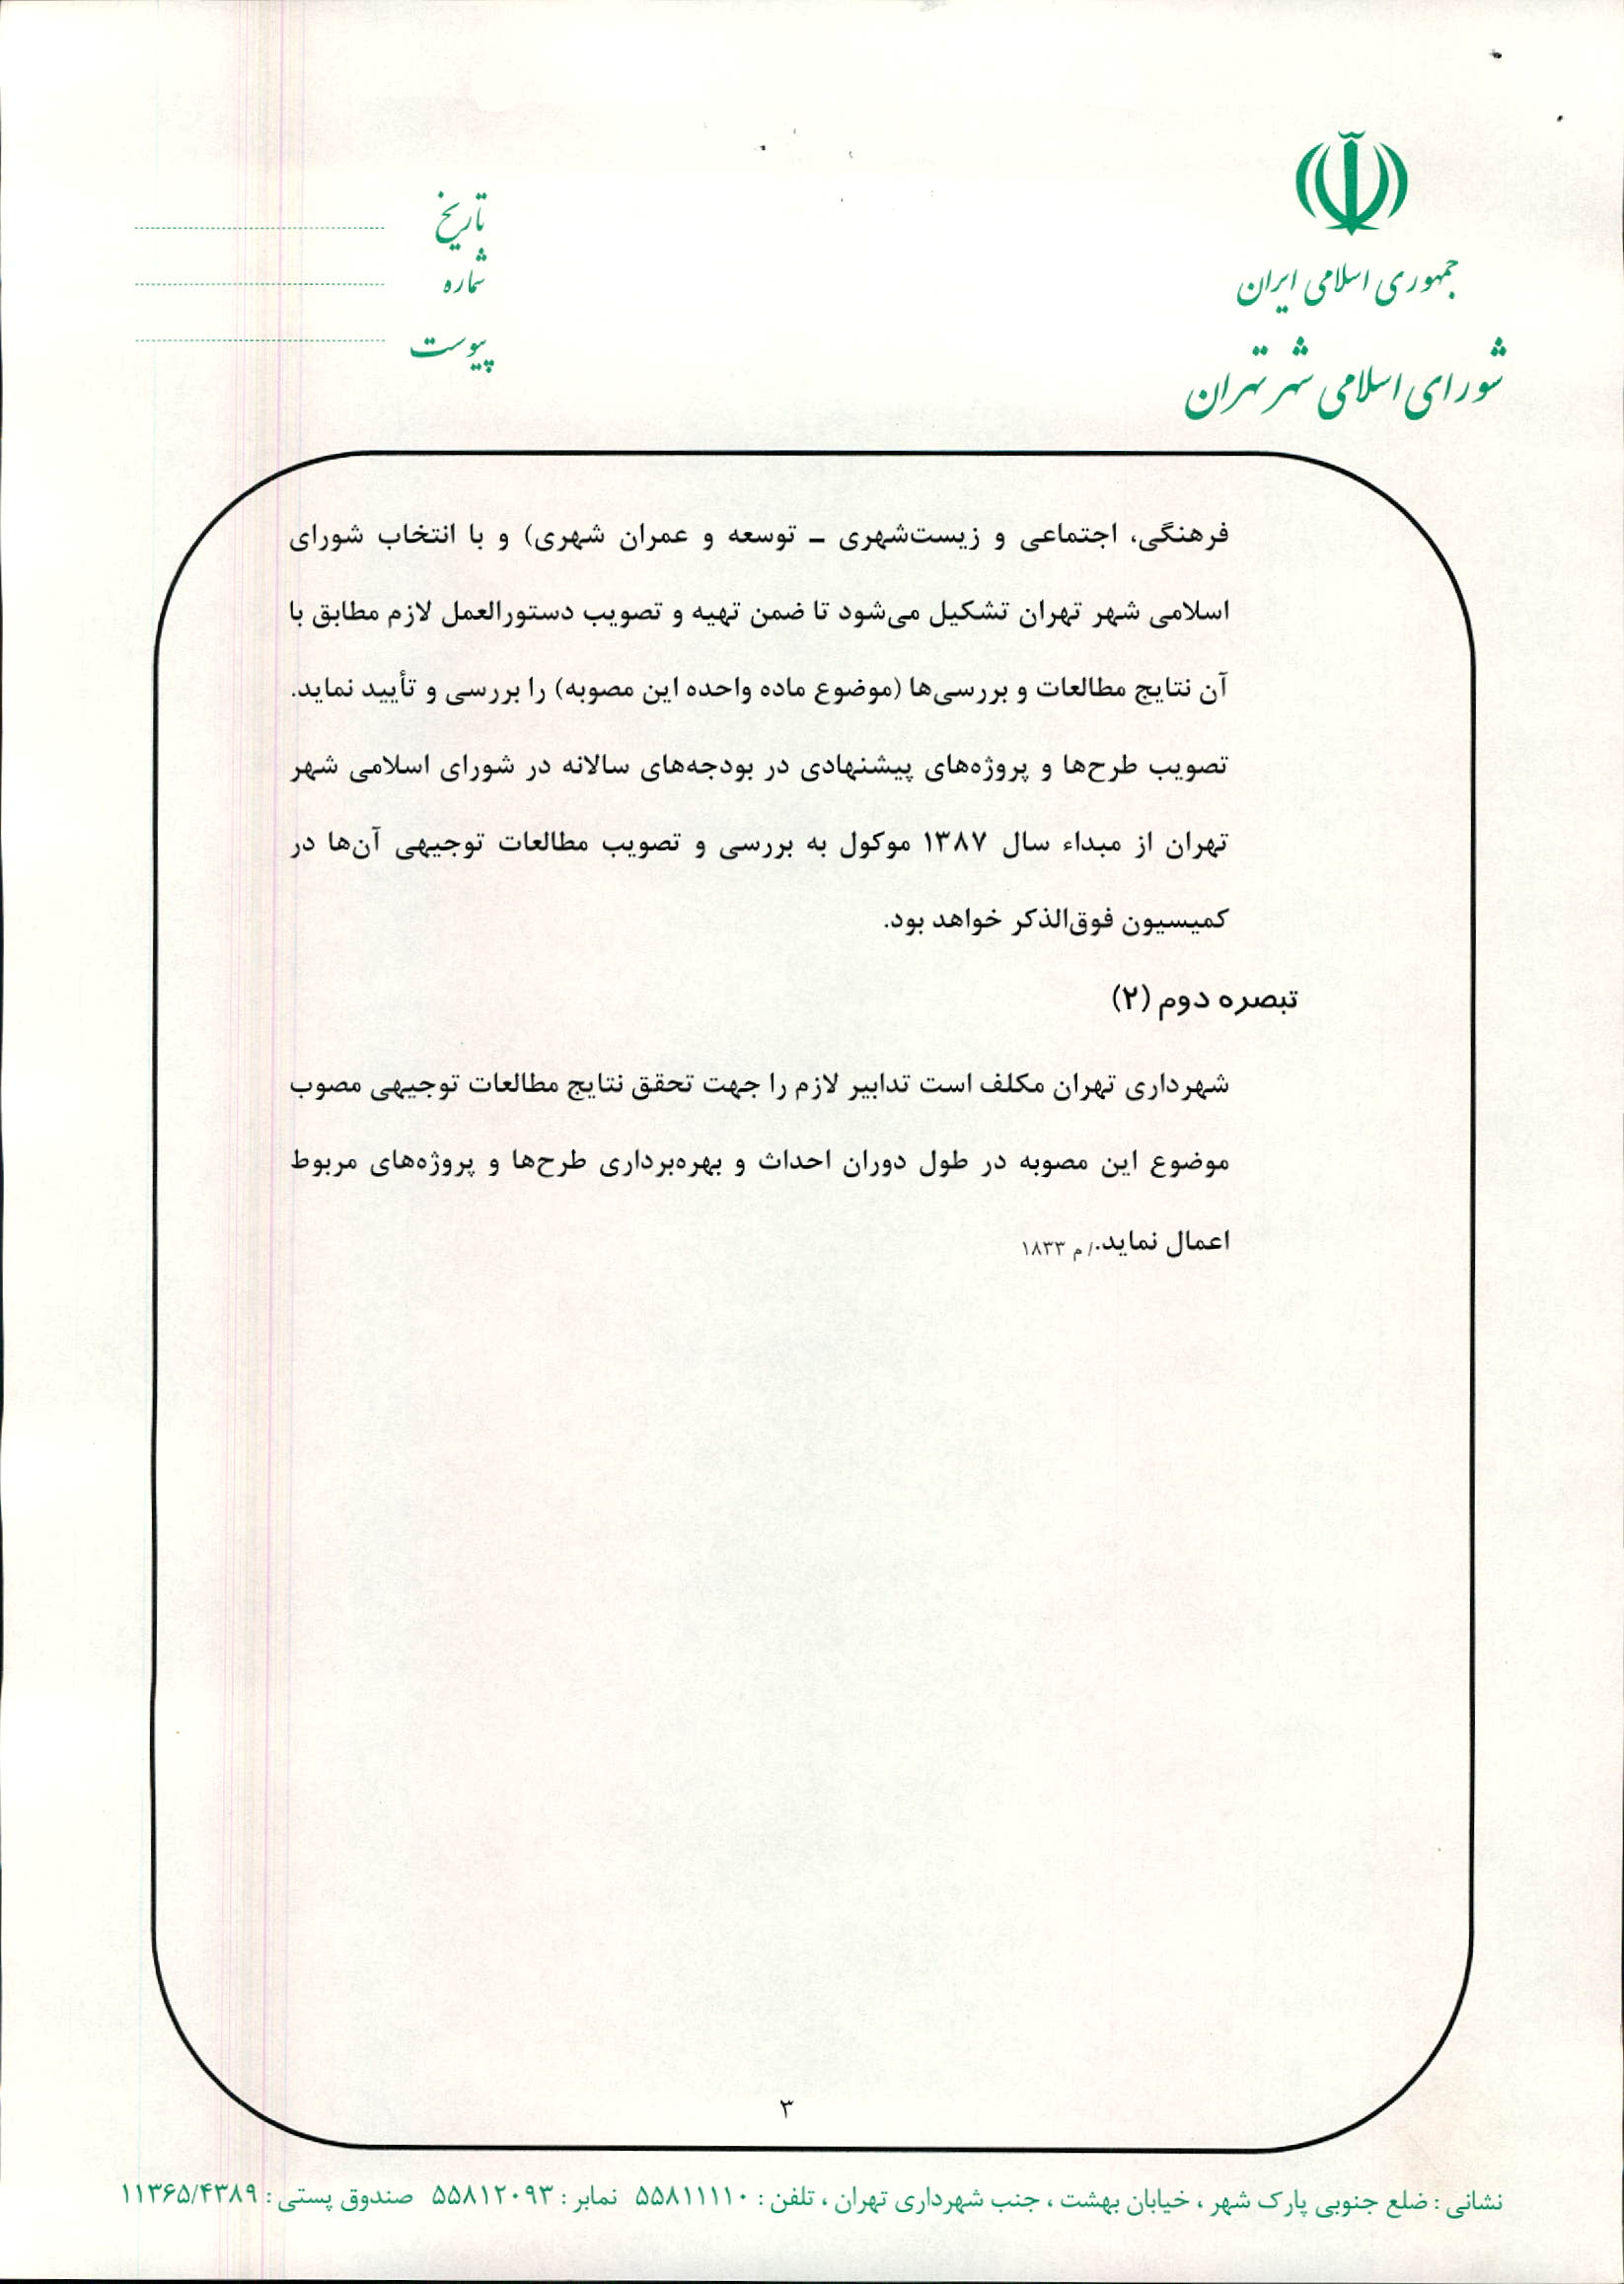 جمهوری اسلامی ایران
شورای اسلامی شهر تهران
تاریخ
شماره
پیوست
فرهنگی، اجتماعی و زیست‌شهری – توسعه و عمران شهری) و با انتخاب شورای
اسلامی شهر تهران تشکیل می‌شود تا ضمن تهیه و تصویب دستورالعمل لازم مطابق با
آن نتایج مطالعات و بررسی‌ها (موضوع ماده واحده این مصوبه) را بررسی و تأیید نماید.
تصویب طرح‌ها و پروژه‌های پیشنهادی در بودجه‌های سالانه در شورای اسلامی شهر
تهران از مبداء سال ۱۳۸۷ موکول به بررسی و تصویب مطالعات توجیهی آن‌ها در
کمیسیون فوق‌الذکر خواهد بود.
تبصره دوم (۲)
شهرداری تهران مکلف است تدابیر لازم را جهت تحقق نتایج مطالعات توجیهی مصوب
موضوع این مصوبه در طول دوران احداث و بهره‌برداری طرح‌ها و پروژه‌های مربوط
اعمال نماید./ م ۱۸۳۳
۳
نشانی : ضلع جنوبی پارک شهر ، خیابان بهشت ، جنب شهرداری تهران ، تلفن : ۵۵۸۱۱۱۱۰ نمابر : ۵۵۸۱۲۰۹۳ صندوق پستی : ۱۱۳۶۵/۴۳۸۹